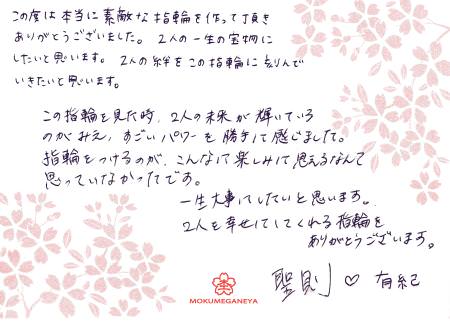 この度は本当に素敵な指輪を作って頂き
ありがとうございました。2人の一生の宝物に
したいと思います。2人の絆をこの指輪に刻んで
いきたいと思います。
この指輪を見た時、2人の未来が輝いている
のがみえ、すごいパワーを勝手に感じました。
指輪をつけるのが、こんなに楽しみに思えるなんて
思っていなかったです。
一生大事にしたいと思います。
2人を幸せにしてくれる指輪を
ありがとうございます。
聖則♡有紀
MOKUMEGANEYA